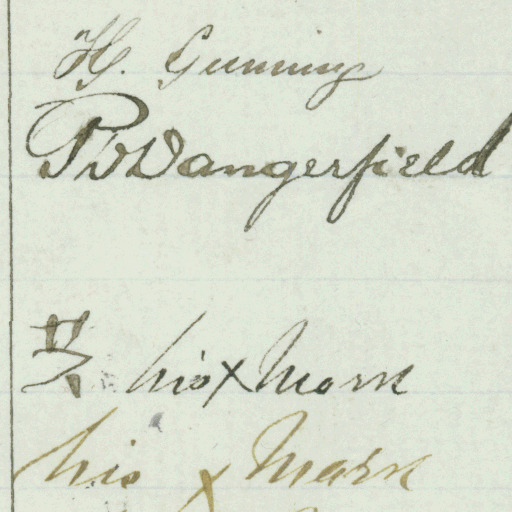 H. Gunning
P D Dangerfield
his x Mark
his x Mark